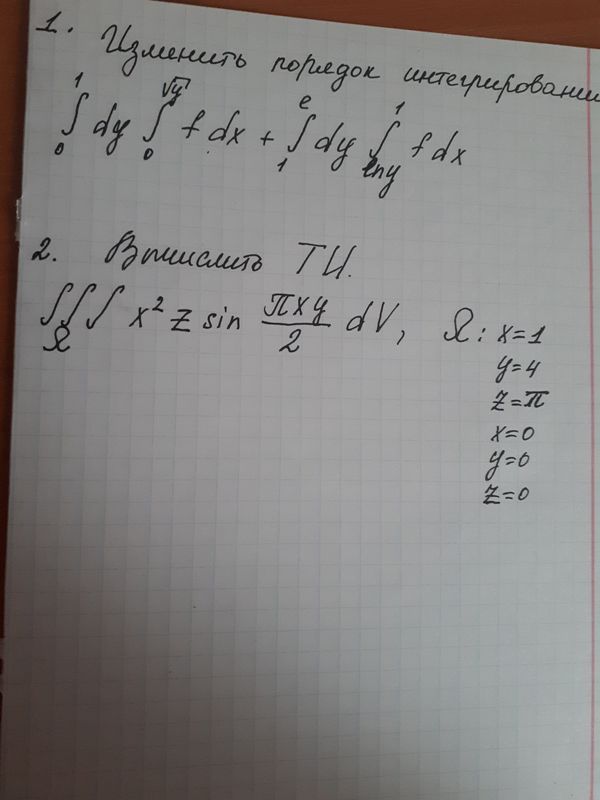 1. Изменить порядок интегрировани
∫₀¹ dy ∫₀^√y f dx + ∫₁^e dy ∫_{ln y}^1 f dx
2. Вычислить ТИ.
∫∫∫_Ω x² z sin πxy/2 dV, Ω: x=1
y=4
z=π
x=0
y=0
z=0